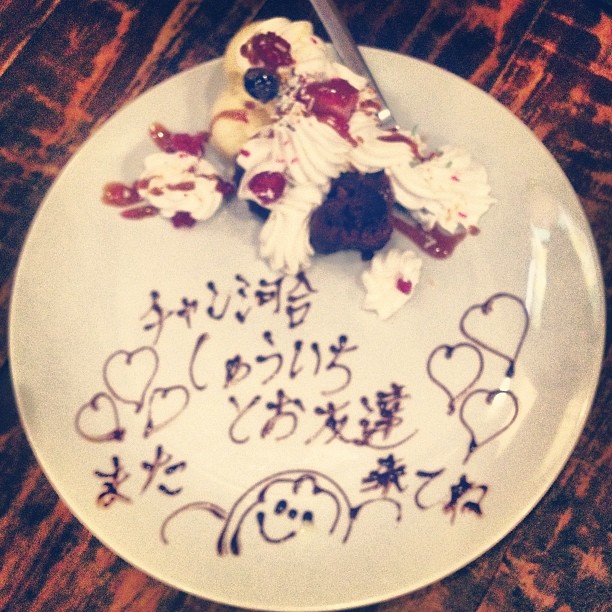 チャン河合
しゅういち
とお友達
また 来てね